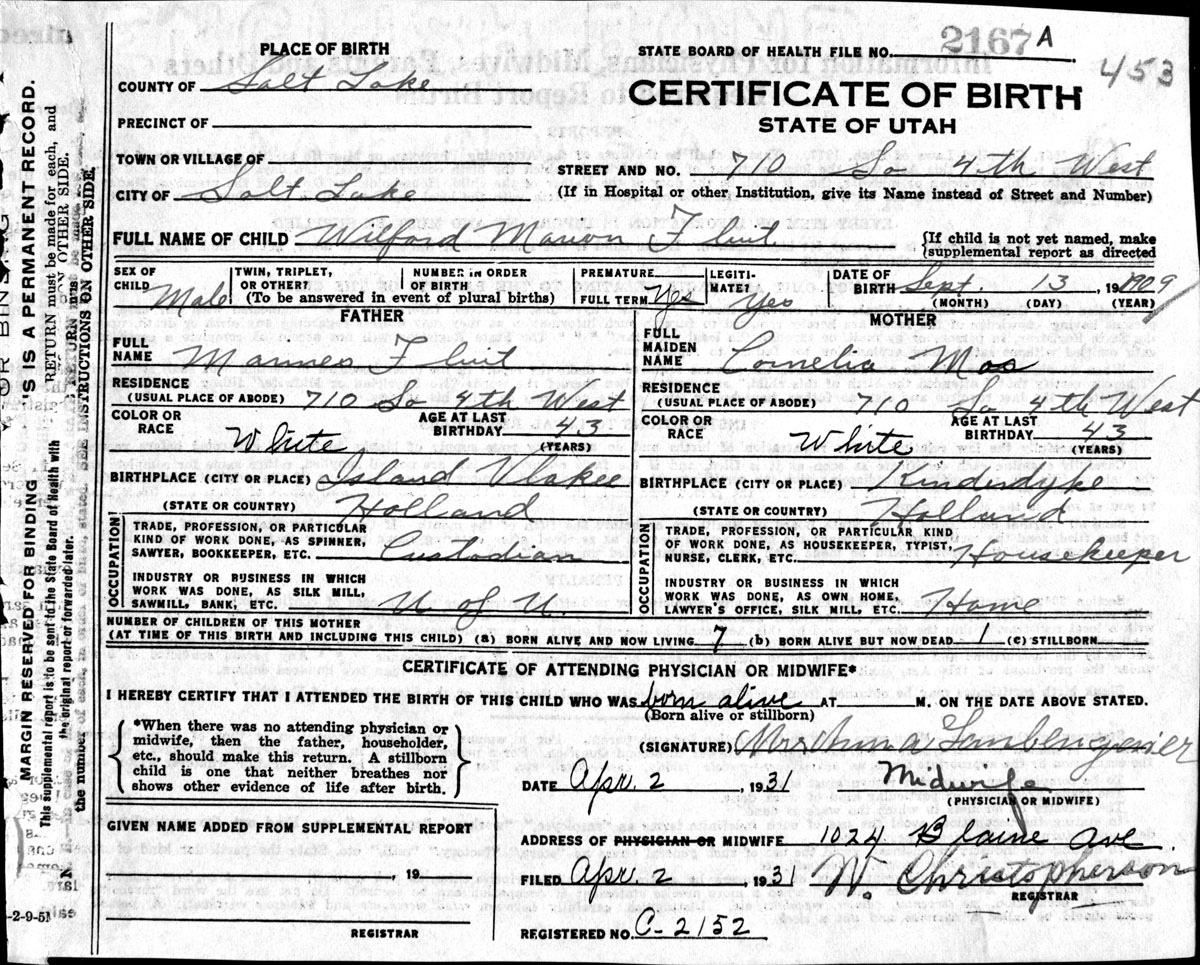 PLACE OF BIRTH
STATE BOARD OF HEALTH FILE NO. 2167 A
453
COUNTY OF Salt Lake
CERTIFICATE OF BIRTH
STATE OF UTAH
PRECINCT OF
TOWN OR VILLAGE OF
STREET AND NO. 710 So 4th West
CITY OF Salt Lake
(If in Hospital or other, Institution, give its Name instead of Street and Number)
FULL NAME OF CHILD Wilford Marion Fluit
{If child is not yet named, make
supplemental report as directed
SEX OF CHILD Male
TWIN, TRIPLET, OR OTHER?
NUMBER IN ORDER OF BIRTH
(To be answered in event of plural births)
PREMATURE
FULL TERM Yes
LEGITIMATE? Yes
DATE OF BIRTH Sept. 13, 1909
(MONTH) (DAY) (YEAR)
FATHER
FULL NAME Marines Fluit
RESIDENCE
(USUAL PLACE OF ABODE) 710 So 4th West
COLOR OR RACE White
AGE AT LAST BIRTHDAY 43
(YEARS)
BIRTHPLACE (CITY OR PLACE) Island Vlakee
(STATE OR COUNTRY) Holland
OCCUPATION
TRADE, PROFESSION, OR PARTICULAR
KIND OF WORK DONE, AS SPINNER,
SAWYER, BOOKKEEPER, ETC. Custodian
INDUSTRY OR BUSINESS IN WHICH
WORK WAS DONE, AS SILK MILL,
SAWMILL, BANK, ETC. U of U.
MOTHER
FULL MAIDEN NAME Cornelia Mas
RESIDENCE
(USUAL PLACE OF ABODE) 710 So 4th West
COLOR OR RACE White
AGE AT LAST BIRTHDAY 43
(YEARS)
BIRTHPLACE (CITY OR PLACE) Kinderdyke
(STATE OR COUNTRY) Holland
OCCUPATION
TRADE, PROFESSION, OR PARTICULAR KIND
OF WORK DONE, AS HOUSEKEEPER, TYPIST,
NURSE, CLERK, ETC. Housekeeper
INDUSTRY OR BUSINESS IN WHICH
WORK WAS DONE, AS OWN HOME,
LAWYER'S OFFICE, SILK MILL, ETC. Home
NUMBER OF CHILDREN OF THIS MOTHER
(AT TIME OF THIS BIRTH AND INCLUDING THIS CHILD) (a) BORN ALIVE AND NOW LIVING 7 (b) BORN ALIVE BUT NOW DEAD 1 (c) STILLBORN
CERTIFICATE OF ATTENDING PHYSICIAN OR MIDWIFE*
I HEREBY CERTIFY THAT I ATTENDED THE BIRTH OF THIS CHILD WHO WAS born alive AT M. ON THE DATE ABOVE STATED.
(Born alive or stillborn)
*When there was no attending physician or
midwife, then the father, householder,
etc., should make this return. A stillborn
child is one that neither breathes nor
shows other evidence of life after birth.
(SIGNATURE) Mrs Anna
DATE Apr. 2, 1931 Midwife
(PHYSICIAN OR MIDWIFE)
GIVEN NAME ADDED FROM SUPPLEMENTAL REPORT
, 19
REGISTRAR
ADDRESS OF PHYSICIAN OR MIDWIFE 1024 Blaine Ave.
FILED Apr. 2, 1931 W. Christopherson
REGISTRAR
REGISTERED NO. C-2152
MARGIN RESERVED FOR BINDING
IS A PERMANENT RECORD.
This supplemental report is to be sent to the State Board of Health with
the original report or forwarded later.
RETURN must be made for each, and
SEE INSTRUCTIONS ON OTHER SIDE.
-2-9-51